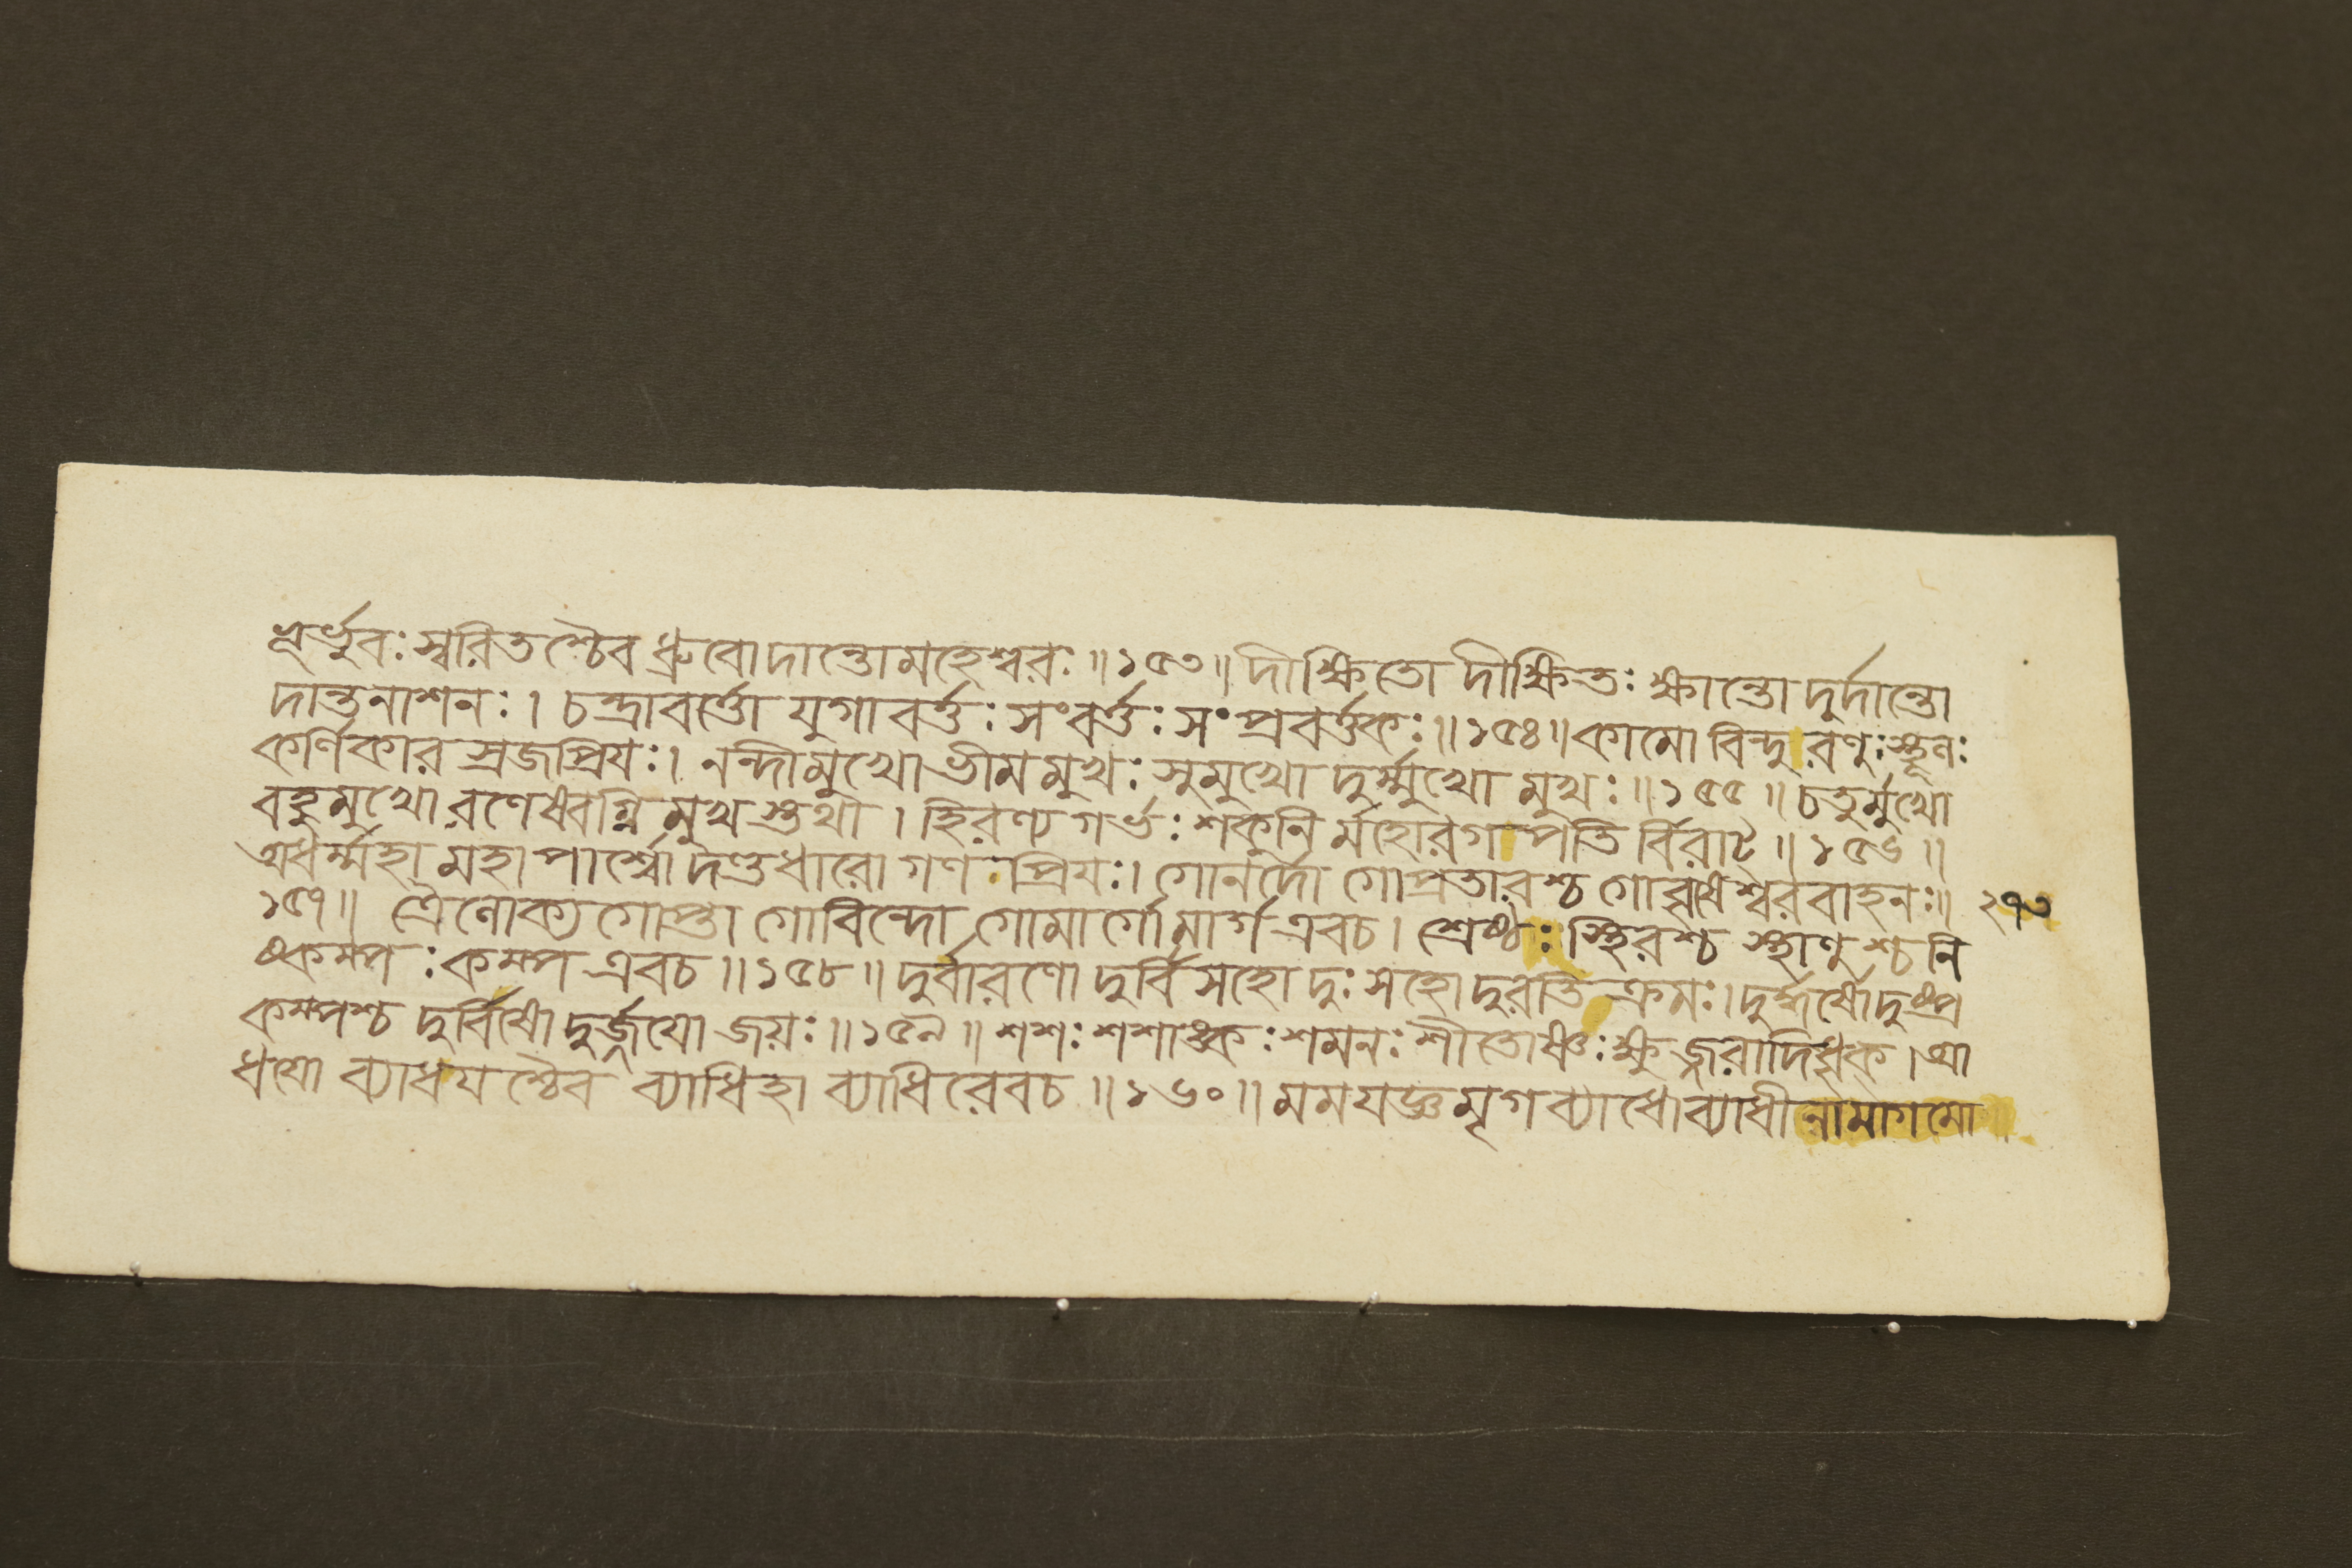 ভূর্ভুবঃ স্বরিতশ্চৈব ধ্রুবো দান্তো মহেশ্বরঃ ॥ ১৫৩ ॥ দীক্ষিতো দীক্ষিতঃ ক্ষান্তো দুর্দান্তো
দান্তনাশনঃ । চন্দ্রাবর্ত্তো যুগাবর্ত্তঃ সংবর্ত্তঃ সংপ্রবর্ত্তকঃ ॥ ১৫৪ ॥ কামো বিন্দুরণুঃ স্থূনঃ
কর্ণিকার স্রজপ্রিযঃ । নন্দীমুখো ভীমমুখঃ সুমুখো দুর্ম্মুখো মুখঃ ॥ ১৫৫ ॥ চতুর্মুখো
বহুমুখো রণেষ্বগ্নিমুখস্তথা । হিরণ্যগর্ভঃ শকুনি র্মহোরগ পতি র্বিরাট ॥ ১৫৬ ॥
অধর্ম্মহা মহাপার্শ্বো দণ্ডধারো গণ প্রিযঃ । গোনর্দো গোপ্রতারশ্চ গোবৃষেশ্বরবাহনঃ ॥ ২৭৩
১৫৭ ॥ ত্রৈনোক্যগোপ্তা গোবিন্দো গোমার্গোমার্গ এবচ । শ্রেষ্ঠঃ স্থিরশ্চ স্থাণুশ্চ নি
ষ্কম্পঃ কম্প এবচ ॥ ১৫৮ ॥ দুর্বারণো দুর্বিসহো দুঃসহো দুরতিক্রমঃ । দুর্দ্ধর্ষো দুষ্প্র
কম্পশ্চ দুর্বিষো দুর্জ্জযো জয়ঃ ॥ ১৫৯ ॥ শশঃ শশাঙ্কঃ শমনঃ শীতোষ্ণঃ ক্ষুজ্জরাদিধৃক । আ
ধযো ব্যাধযশ্চৈব ব্যাধিহা ব্যাধিরেবচ ॥ ১৬০ ॥ মমযজ্ঞমৃগব্যাধো ব্যাধীনামাগমো